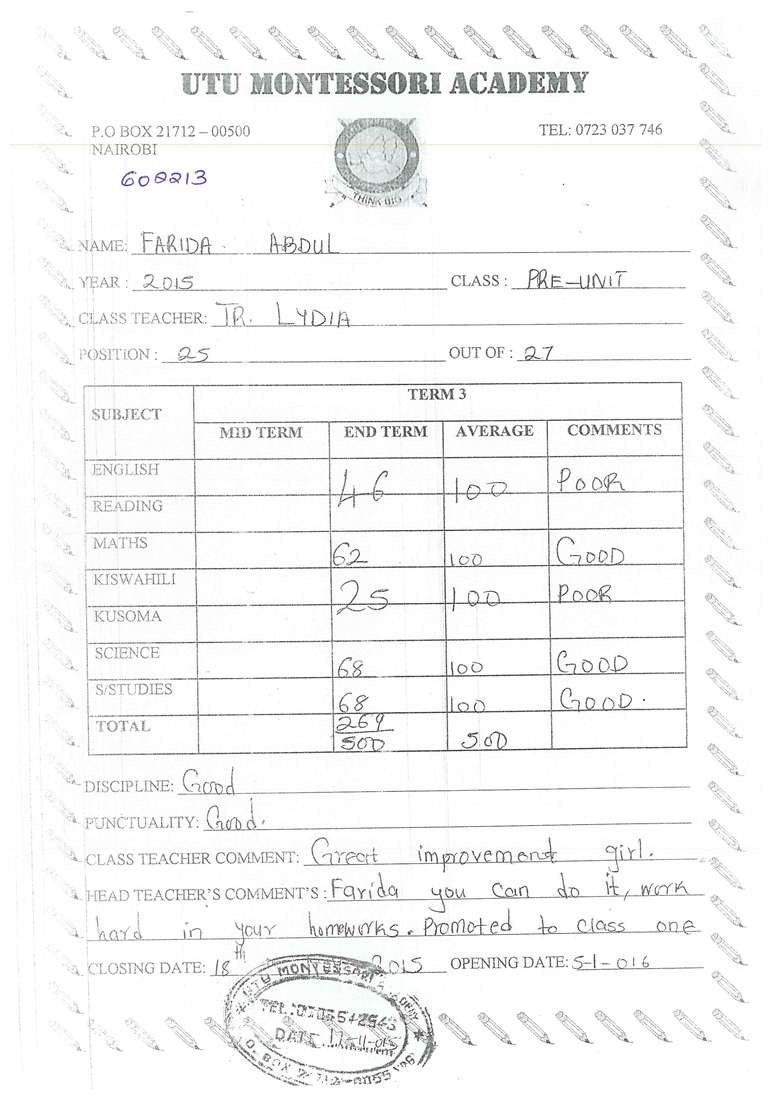 UTU MONTESSORI ACADEMY
P.O BOX 21712 – 00500 TEL: 0723 037 746
NAIROBI
THINK BIG
NAME: FARIDA ABDUL
YEAR : 2015 CLASS : PRE-UNIT
CLASS TEACHER: TR. LYDIA
POSITION : 25 OUT OF : 27
SUBJECT TERM 3
MID TERM END TERM AVERAGE COMMENTS
ENGLISH 46 100 POOR
READING
MATHS 62 100 GOOD
KISWAHILI 25 100 POOR
KUSOMA
SCIENCE 68 100 GOOD
S/STUDIES 68 100 GOOD.
TOTAL 269
500 500
DISCIPLINE: Good
PUNCTUALITY: Good.
CLASS TEACHER COMMENT: Great improvement girl.
HEAD TEACHER'S COMMENT'S : Farida you can do it, work
hard in your homeworks. Promoted to class one
CLOSING DATE: 18th 2015 OPENING DATE: 5-1-016
UTU MONTESSORI
TEL:
DATE